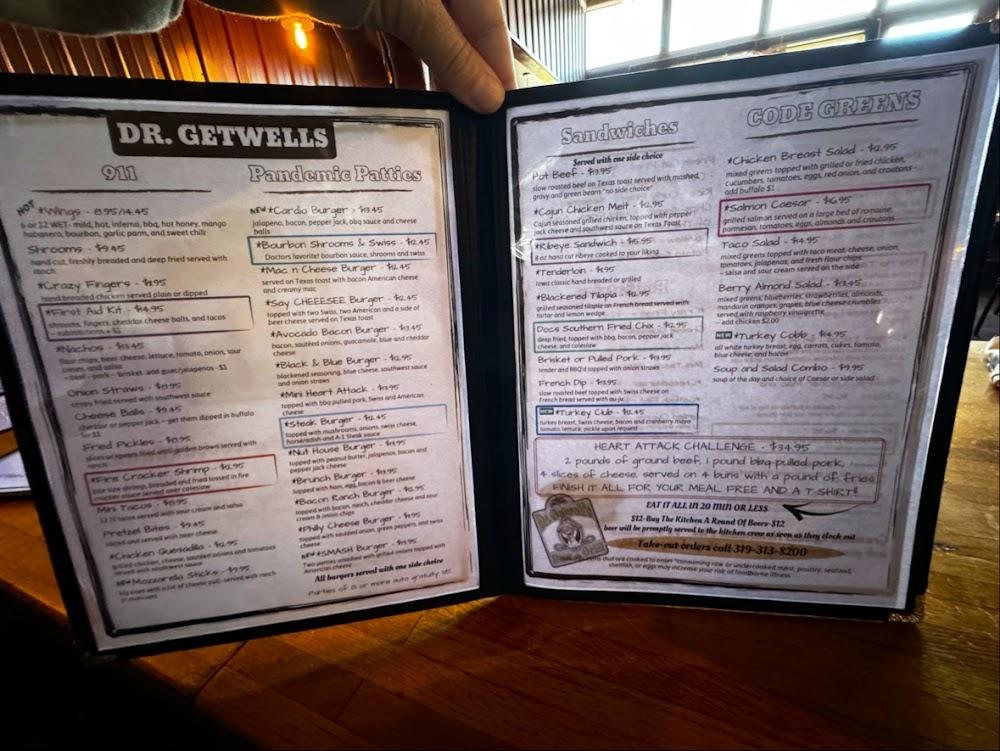 DR. GETWELLS
911
HOT
*Wings - 8.95/14.45
6 or 12 WET- mild, hot, inferno, bbq, hot honey, mango
habanero, bourbon, garlic parm, and sweet chili
Shrooms - $9.45
hand cut, freshly breaded and deep fried served with
ranch
*Crazy Fingers -
hand breaded chicken served plain or dipped
*First Aid Kit - $14.95
shrooms, fingers, cheddar cheese balls, and tacos
*Nachos -
flour chips, beer cheese, lettuce, tomato, onion, sour
cream, and salsa
- beef - pork - brisket, add guac/jalapenos - $1
Onion Straws -
crispy fried served with southwest sauce
Cheese Balls - $9.45
cheddar or pepper jack - get them dipped in buffalo
for $1
Fried Pickles -
fried until golden brown served with
ranch
*Fire Cracker Shrimp - $12.95
bite size shrimp, breaded and fried tossed in fire
cracker sauce served over coleslaw
Mini Tacos -
served with sour cream and salsa
Pretzel Bites - $9.45
served with beer cheese
*Chicken Quesadilla -
grilled chicken, cheese, sautéed onions and tomatoes
served with southwest sauce
NEW Mozzarella Sticks -
served with ranch
or marinara
Pandemic Patties
NEW *Cardio Burger - $13.45
jalapeno, bacon, pepper jack, bbq sauce and cheese
balls
*Bourbon Shrooms & Swiss - $12.45
Doctors favorite! bourbon sauce, shrooms and swiss
*Mac n Cheese Burger - $12.45
served on Texas toast with bacon American cheese
and creamy mac
*Say CHEEESEE Burger - $12.45
topped with two Swiss, two American and a side of
beer cheese served on Texas toast
*Avocado Bacon Burger - $13.45
bacon, sautéed onions, guacamole, blue and cheddar
cheese
*Black & Blue Burger - $12.95
blackened seasoning, blue cheese, southwest sauce
and onion straws
*Mini Heart Attack - $13.95
topped with bbq pulled pork, Swiss and American
cheese
*Steak Burger - $12.45
topped with mushrooms, onions, swiss cheese,
horseradish and A-1 Steak sauce
*Nut House Burger - $13.95
topped with peanut butter, jalapenos, bacon and
pepper jack cheese
*Brunch Burger - $13.95
topped with ham, egg, bacon & cheese
*Bacon Ranch Burger - $12.95
topped with bacon, ranch, cheddar cheese and sour
cream & onion chips
*Philly Cheese Burger - $12.95
topped with sautéed onion, green peppers, and swiss
cheese
NEW *SMASH Burger - $13.95
Two patties smashed with grilled onions topped with
American cheese
All burgers served with one side choice
Parties of 8 or more auto gratuity
Sandwiches
Served with one side choice
Hot Beef - $13.95
slow roasted beef on Texas toast served with mashed,
gravy and green beans "no side choice"
*Cajun Chicken Melt - $12.95
Cajun seasoned grilled chicken, topped with pepper
jack cheese and southwest sauce on Texas Toast
*Ribeye Sandwich - $15.95
8 oz hand cut ribeye cooked to your liking
*Tenderloin -
Iowa classic hand breaded or grilled
*Blackened Tilapia - $12.95
grilled seasoned tilapia on French bread served with
tartar and lemon wedge
Docs Southern Fried Chix - $12.95
deep fried, topped with bbq, bacon, pepper jack
cheese, and coleslaw
Brisket or Pulled Pork - $13.95
tender and BBQ'd topped with onion straws
French Dip - $13.95
slow roasted beef topped with Swiss cheese on
French bread served with au jus
NEW *Turkey Club - $12.45
turkey breast, Swiss cheese, bacon and cranberry mayo
tomato, lettuce, pickle upon request
CODE GREENS
*Chicken Breast Salad - $12.95
mixed greens topped with grilled or fried chicken,
cucumbers, tomatoes, eggs, red onion, and croutons -
add buffalo $1
*Salmon Caesar - $16.95
grilled salmon served on a large bed of romaine,
parmesan, tomatoes, eggs, almonds and croutons
Taco Salad - $14.95
mixed greens topped with taco meat, cheese, onion,
tomatoes, jalapenos, and fresh flour chips
- salsa and sour cream served on the side
Berry Almond Salad - $13.45
mixed greens, blueberries, strawberries, almonds,
mandarin oranges, grapes, blue cheese crumbles
served with raspberry vinaigrette
- add chicken $2.00
NEW *Turkey Cobb - $14.95
all white turkey breast, egg, carrots, cukes, tomato,
blue cheese, and bacon
Soup and Salad Combo - $9.95
soup of the day and choice of Caesar or side salad
HEART ATTACK CHALLENGE - $34.95
2 pounds of ground beef, 1 pound bbq pulled pork,
4 slices of cheese, served on 4 buns with a pound of fries.
FINISH IT ALL FOR YOUR MEAL FREE AND A T-SHIRT!!
EAT IT ALL IN 20 MIN OR LESS
$12-Buy The Kitchen A Round Of Beers-$12
beer will be promptly served to the kitchen crew as soon as they clock out
Take-out orders call 319-313-8200
items that are cooked to order "consuming raw or undercooked meat, poultry, seafood,
shellfish, or eggs may increase your risk of foodborne illness